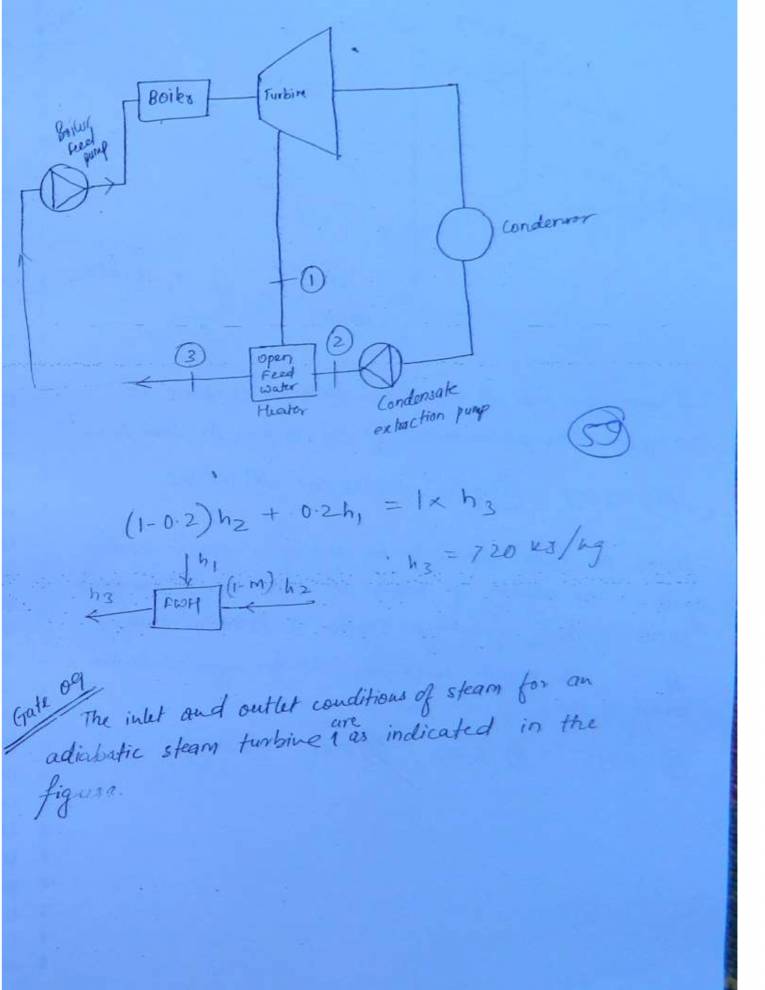 Boiler
Turbine
Boiler
Feed
pump
Condensor
①
②
③
Open
Feed
Water
Heater
Condensate
extraction pump
59
(1-0.2)h₂ + 0.2h₁ = 1× h₃
∴ h₃ = 720 kJ/kg
h₁
h₃
FWH
(1-m) h₂
Gate 09
The inlet and outlet conditions of steam for an
adiabatic steam turbine are as indicated in the
figure.